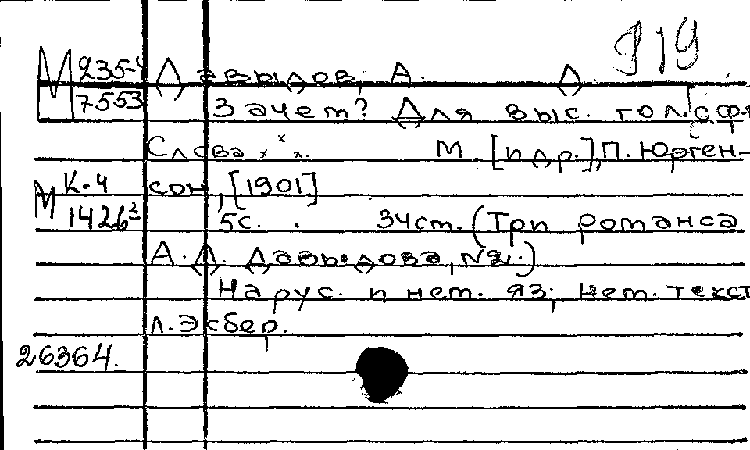 919
М 235-4 Давыдов, А. Д
7553 Зачем? Для выс. гол. с ф-п
Слова * * *. М. [и др.], П. Юрген-
М К-4 сон, [1901]
1426³ 5с. 34ст. (Три романса
А. Д. Давыдова, № 2.)
На рус. и нем. яз; нем. текст
Л. Эсбер.
26364.